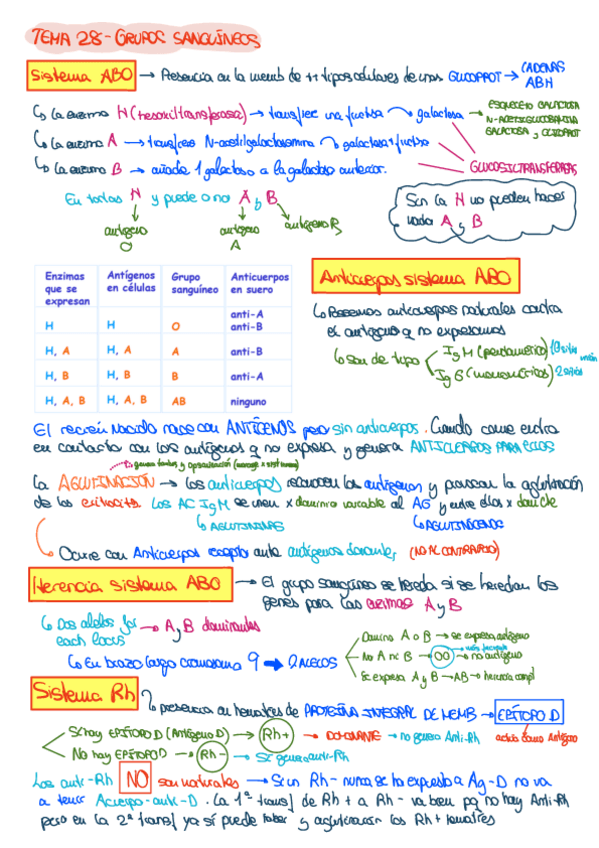 TEMA 28 - GRUPOS SANGUÍNEOS
Sistema ABO → Presencia en la memb de ++ tipos celulares de unas GLUCOPROT → CADENAS ABH
↳ La enzima H (fucosiltransferasa) → transfiere una fucosa → galactosa → ESQUELETO GALACTOSA
N-ACETILGLUCOSAMINA
GALACTOSA y GLUCOPROT
↳ La enzima A → transfiere N-acetilgalactosamina → galactosa + fucosa
↳ La enzima B → añade 1 galactosa a la galactosa anterior.
GLUCOSILTRANSFERASAS
En todas H y puede o no A y B
antígeno O
antígeno A
antígeno B
Sin la H no pueden hacer nada A y B
Enzimas que se expresan | Antígenos en células | Grupo sanguíneo | Anticuerpos en suero
H | H | O | anti-A anti-B
H, A | H, A | A | anti-B
H, B | H, B | B | anti-A
H, A, B | H, A, B | AB | ninguno
Anticuerpos sistema ABO
↳ Poseemos anticuerpos naturales contra
el antígeno q no expresamos
↳ Son de tipo
IgM (pentamérico) 10 sitios unión
IgG (monoméricos) 2 sitios
El recién nacido nace con ANTÍGENOS pero sin anticuerpos. Cuando come entra
en contacto con los antígenos q no expresa y genera ANTICUERPOS PARA ELLOS
La AGLUTINACIÓN → los anticuerpos reconocen los antígenos y provocan la aglutinación
de los eritrocitos. Los AC IgM se unen x dominio variable al AG y entre ellos x
↳ AGLUTININAS
↳ AGLUTINÓGENOS
Ocurre con Anticuerpos receptor ante antígenos donante, (NO AL CONTRARIO)
Herencia sistema ABO → El grupo sanguíneo se hereda si se heredan los
genes para las enzimas A y B
↳ Dos alelos for each locus → A y B dominantes
↳ En brazo largo cromosoma 9 → 2 ALELOS
Domina A o B → se expresa antígeno
No A ni B → OO → no antígeno
Se expresa A y B → AB → herencia
Sistema Rh
↳ presencia en hematíes de PROTEÍNA INTEGRAL DE MEMB → EPÍTOPO D
actúa como Antígeno
Si hay EPÍTOPO D (Antígeno D) → Rh+ → DOMINANTE → no genera Anti-Rh
No hay EPÍTOPO D → Rh- → Sí genera anti-Rh
Los anti-Rh NO son naturales → Si un Rh- nunca se ha expuesto a Ag-D no va
a tener Anti-D. La 1ª transf de Rh+ a Rh- va bien pq no hay Anti-Rh
pero en la 2ª transf ya sí puede haber y aglutinarán los Rh+ hematíes